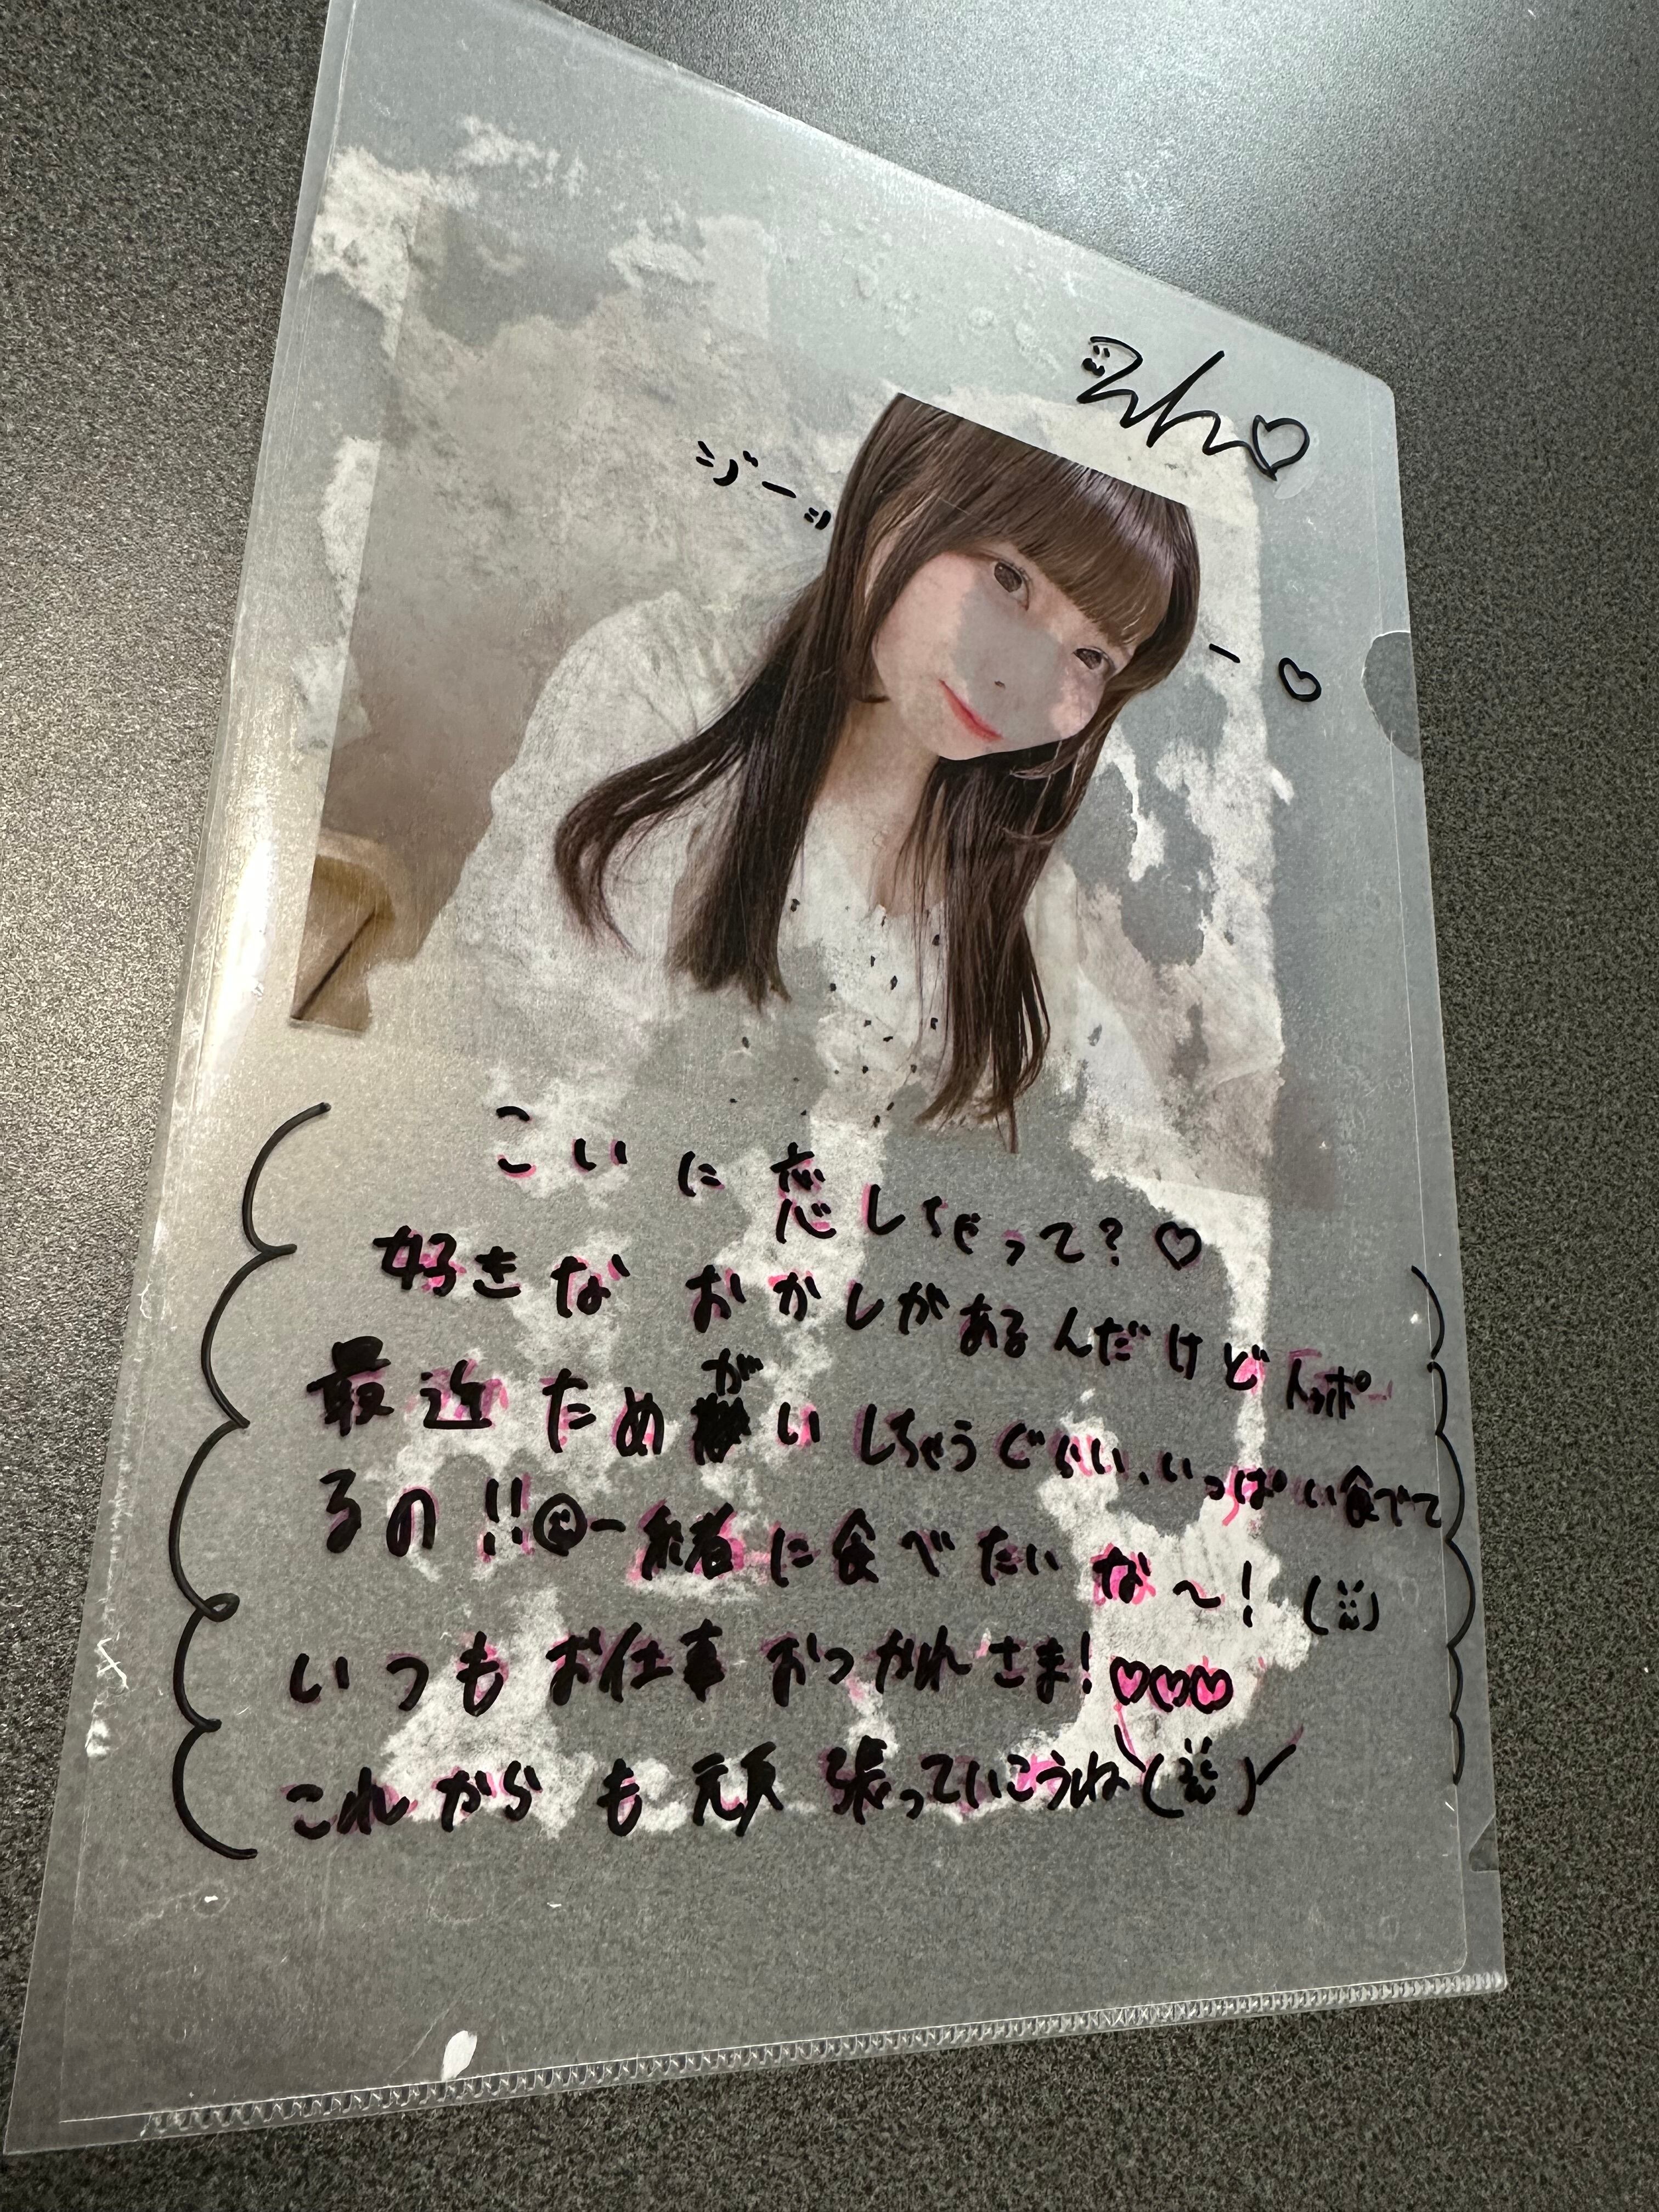 ジーッ
ー♡
こいに恋しちゃって?♡
好きなおかしがあるんだけどトッポ
最近ためがいしちゃうぐらい、いっぱい食べて
るの!!一緒に食べたいな〜!
いつもお仕事おつかれさま!♡♡♡
これからも頑張っていこうね